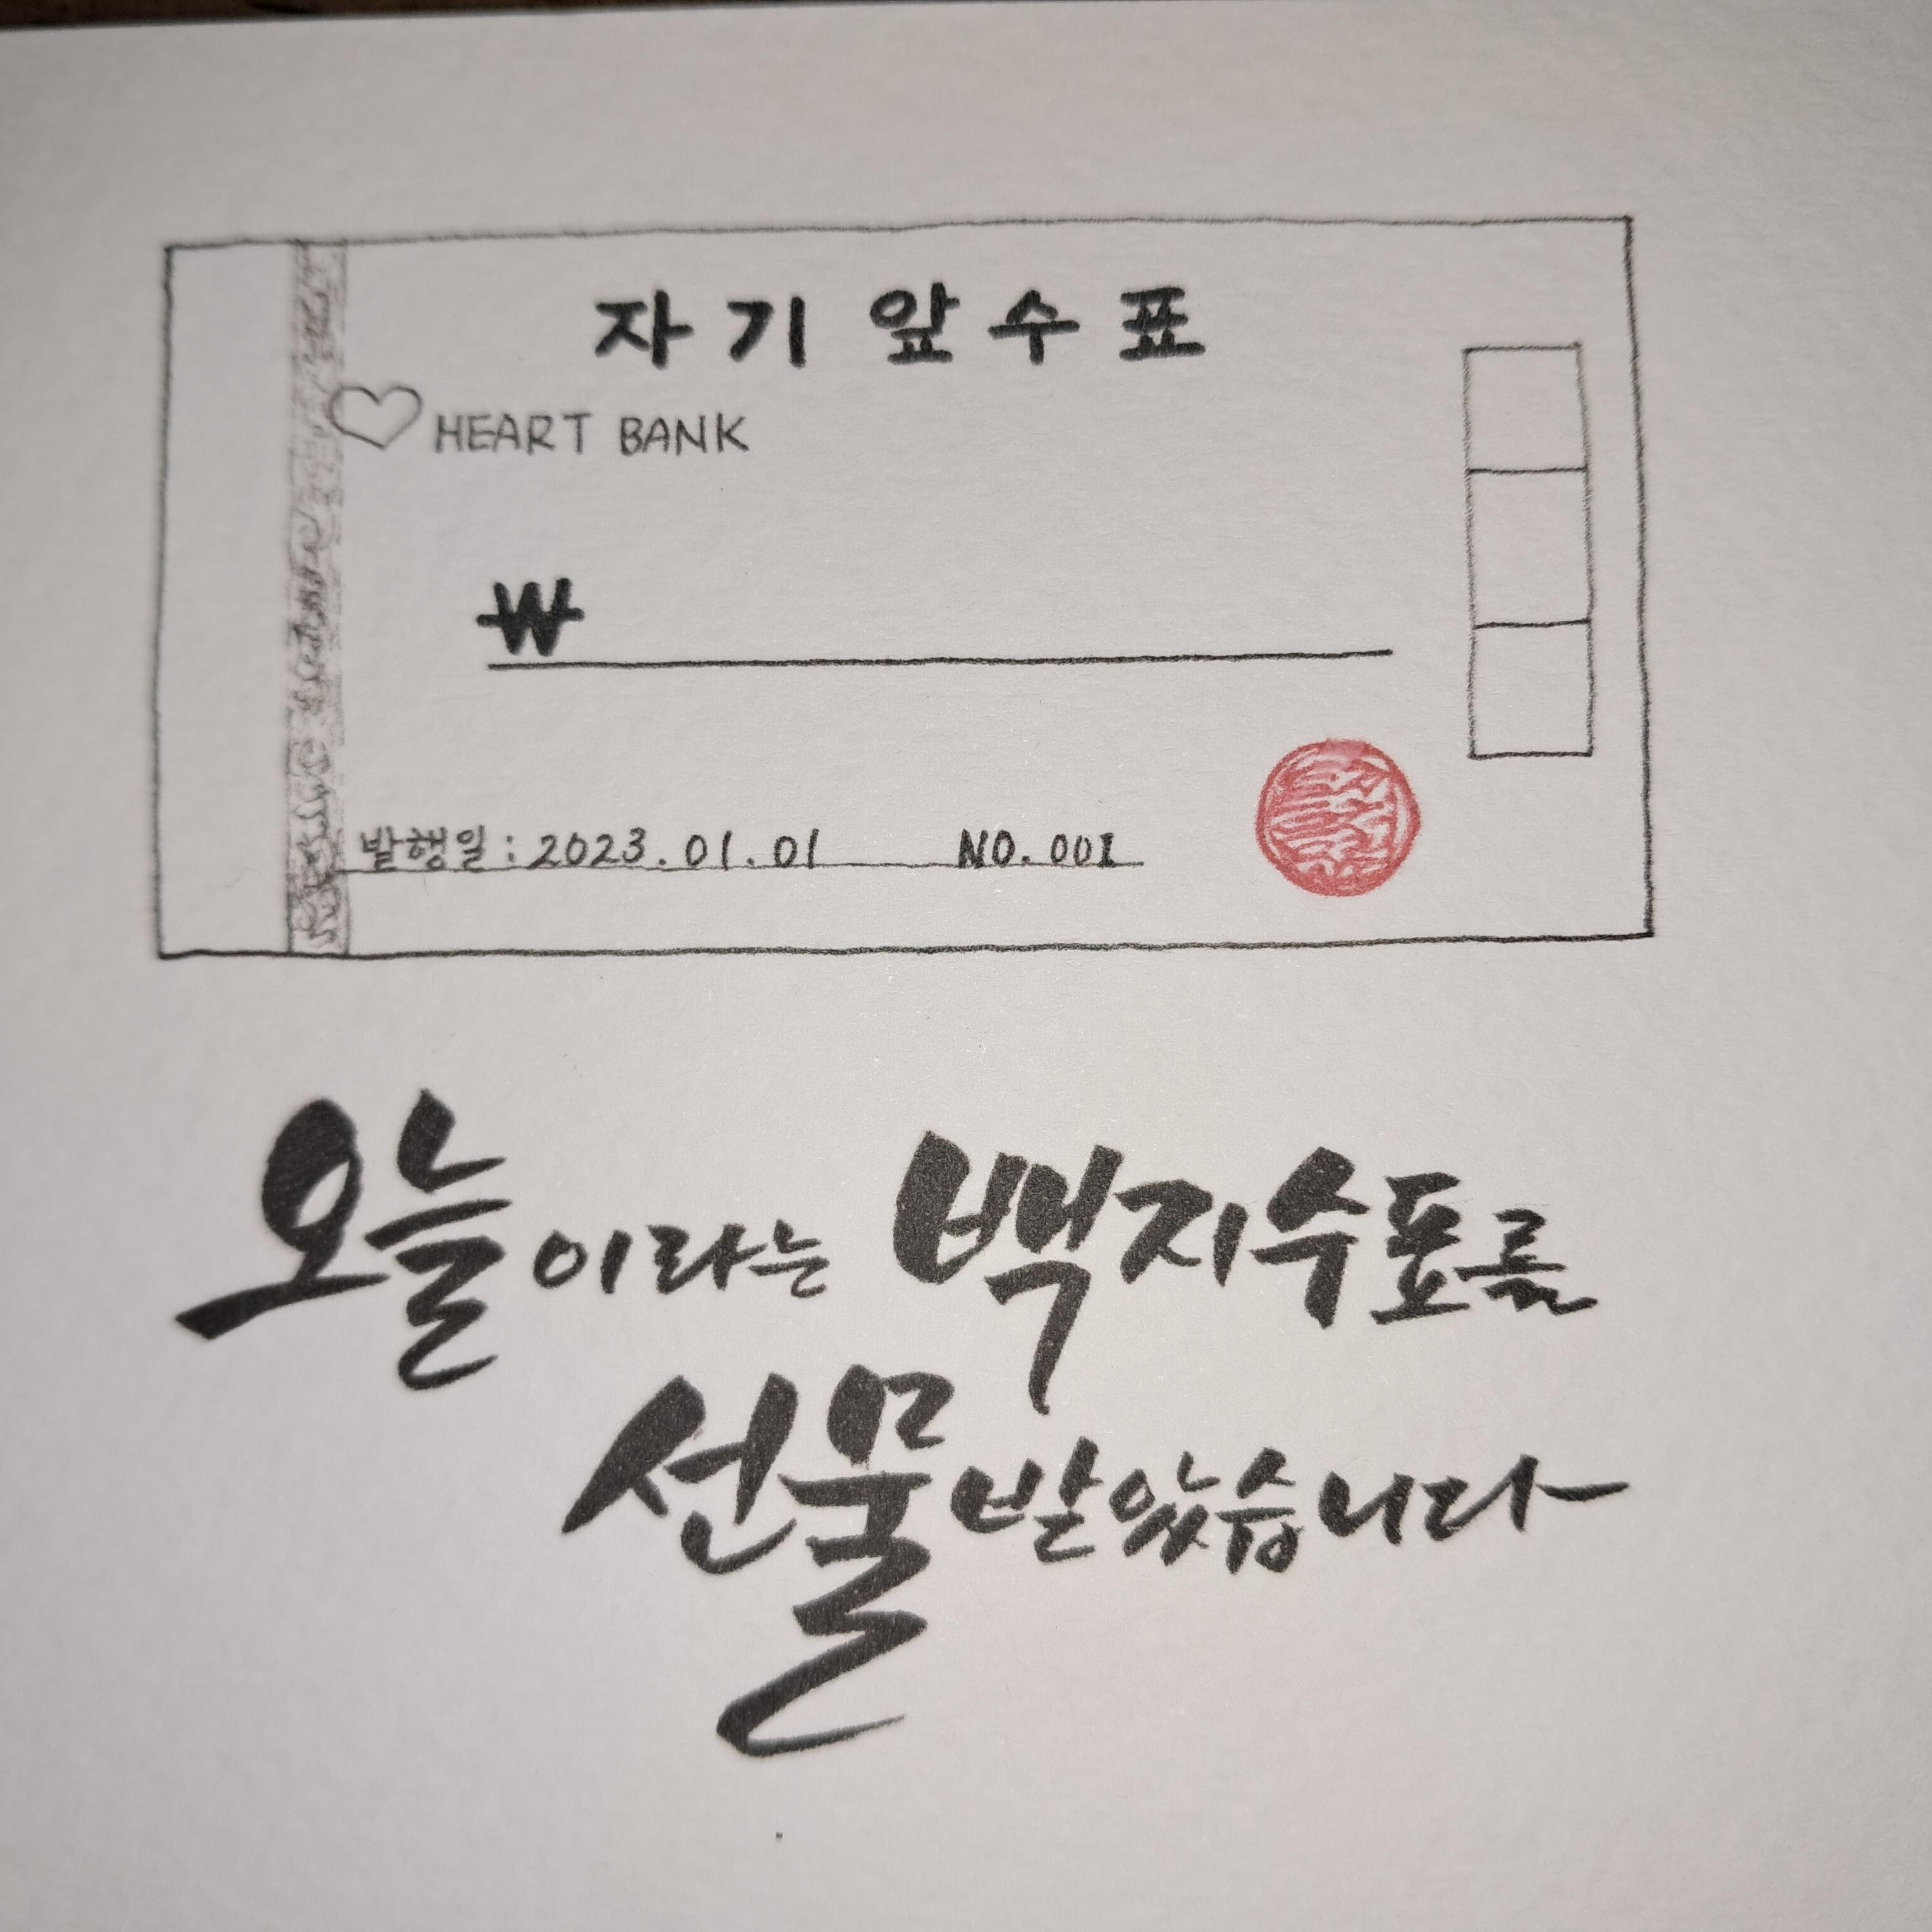 자기앞수표
HEART BANK
₩
발행일: 2023.01.01 NO. 001
오늘이라는 백지수표를
선물받았습니다